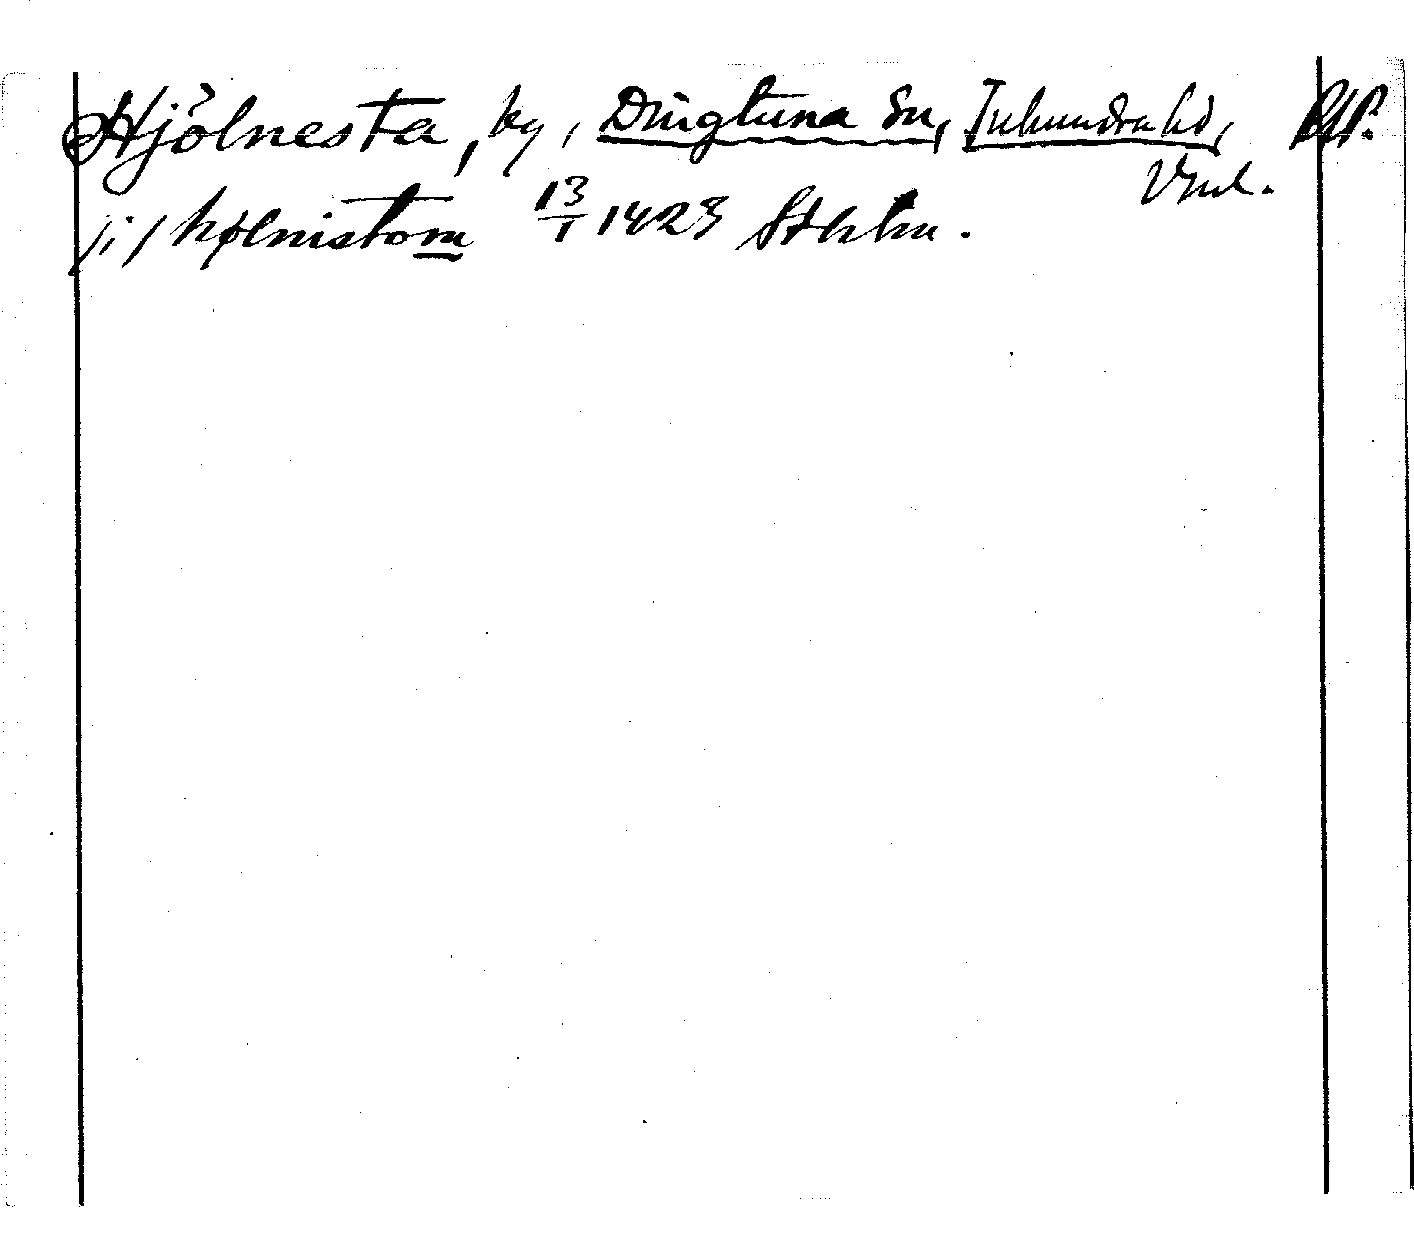 Hjölnesta, by, Dingtuna sn, Tuhundra hd, RAP.
Vml.
/i/ hølnistom 13/1 1423 Sthlm.